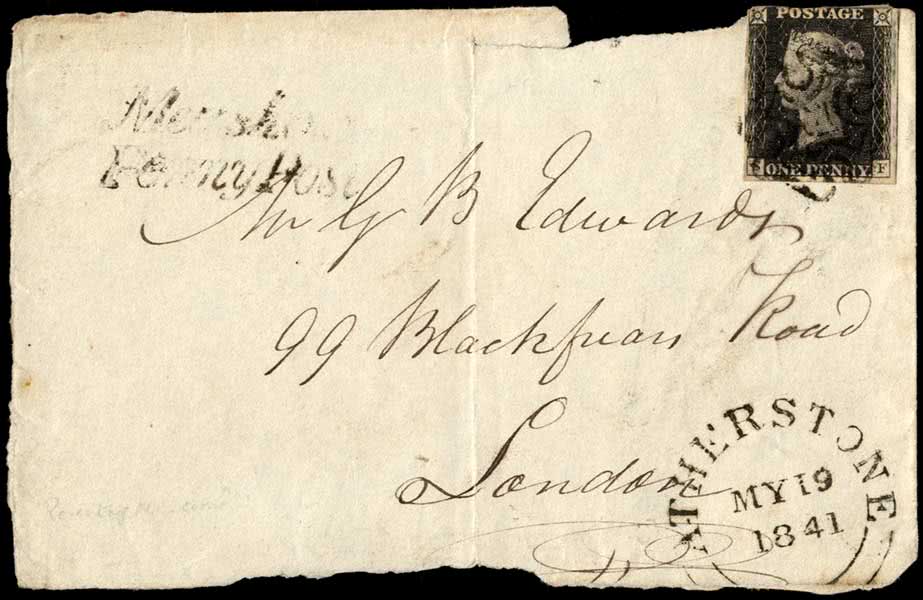 POSTAGE
ONE PENNY F
Penny Post
Mr G B Edwards
99 Blackfriars Road
London
ATHERSTONE
MY 19
1841